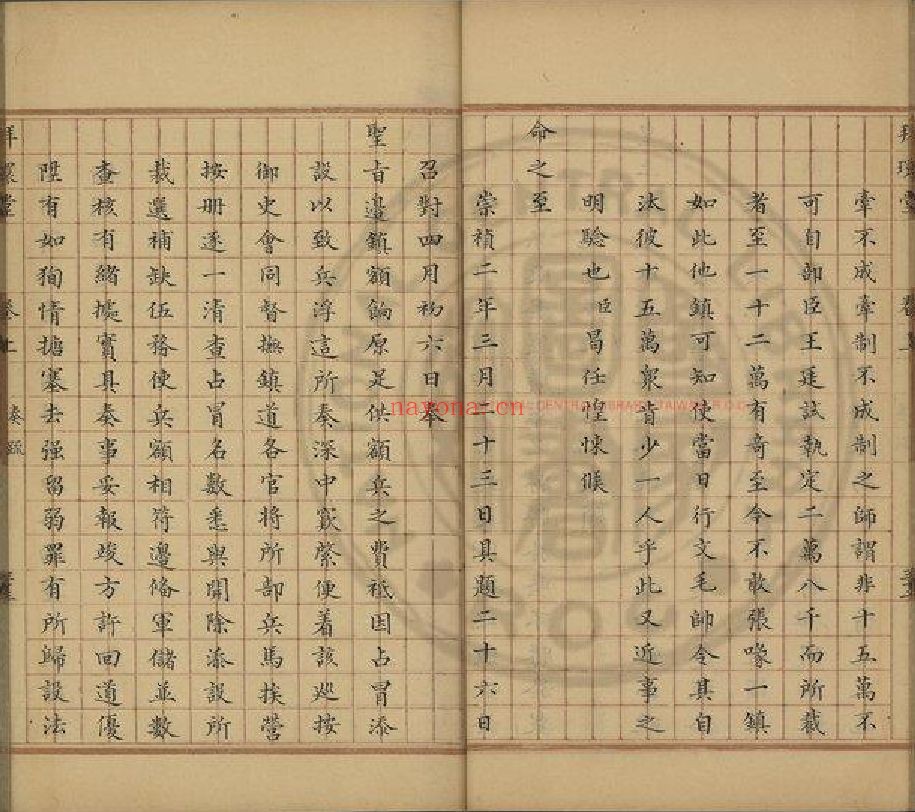 牽不成牽制不成制之師謂非十五萬不
可自部臣王廷試執定二萬八千而所裁
者至一十二萬有奇至今不敢張喙一鎮
如此他鎮可知使當日行文毛帥令其自
汰彼十五萬眾肯少一人乎此又近事之
明騐也臣曷任惶悚候
命之至
崇禎二年三月二十三日具題二十六日
召對四月初六日奉
聖旨邊鎮額餉原是供額兵之費秪因占冒添
設以致兵浮這所奏深中窾綮便着該廵按
御史會同督撫鎮道各官將所部兵馬挨營
按冊逐一清查占冒名數悉與開除添設所
裁選補缺伍務使兵額相符邊俻軍儲並數
查核有緒㩀實具奏事妥報竣方許回道優
陞有如狥情搪塞去强留弱罪有所歸設法
奏疏
nayona.cn